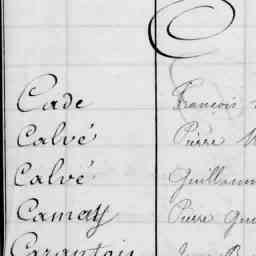 C
Cade François
Calvé Pierre
Calvé Guillaum
Camay Pierre